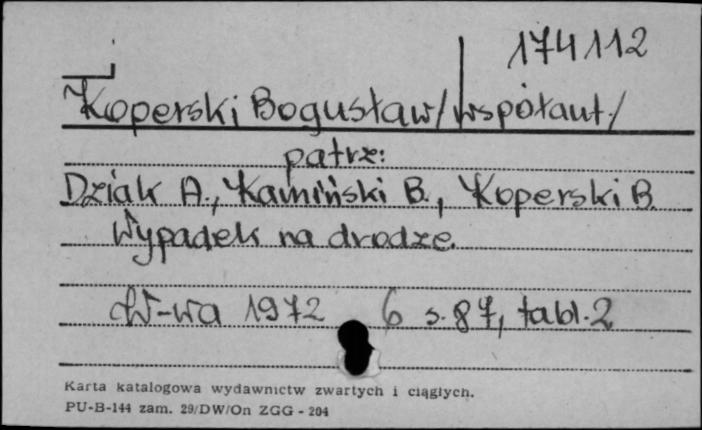 174112
Koperski Bogusław/współaut./
patrz:
Dziak A., Kamiński B., Koperski B.
Wypadek na drodze.
W-wa 1972 6 s. 87, tabl. 2
Karta katalogowa wydawnictw zwartych i ciągłych.
PU-B-144 zam. 29/DW/On ZGG - 204